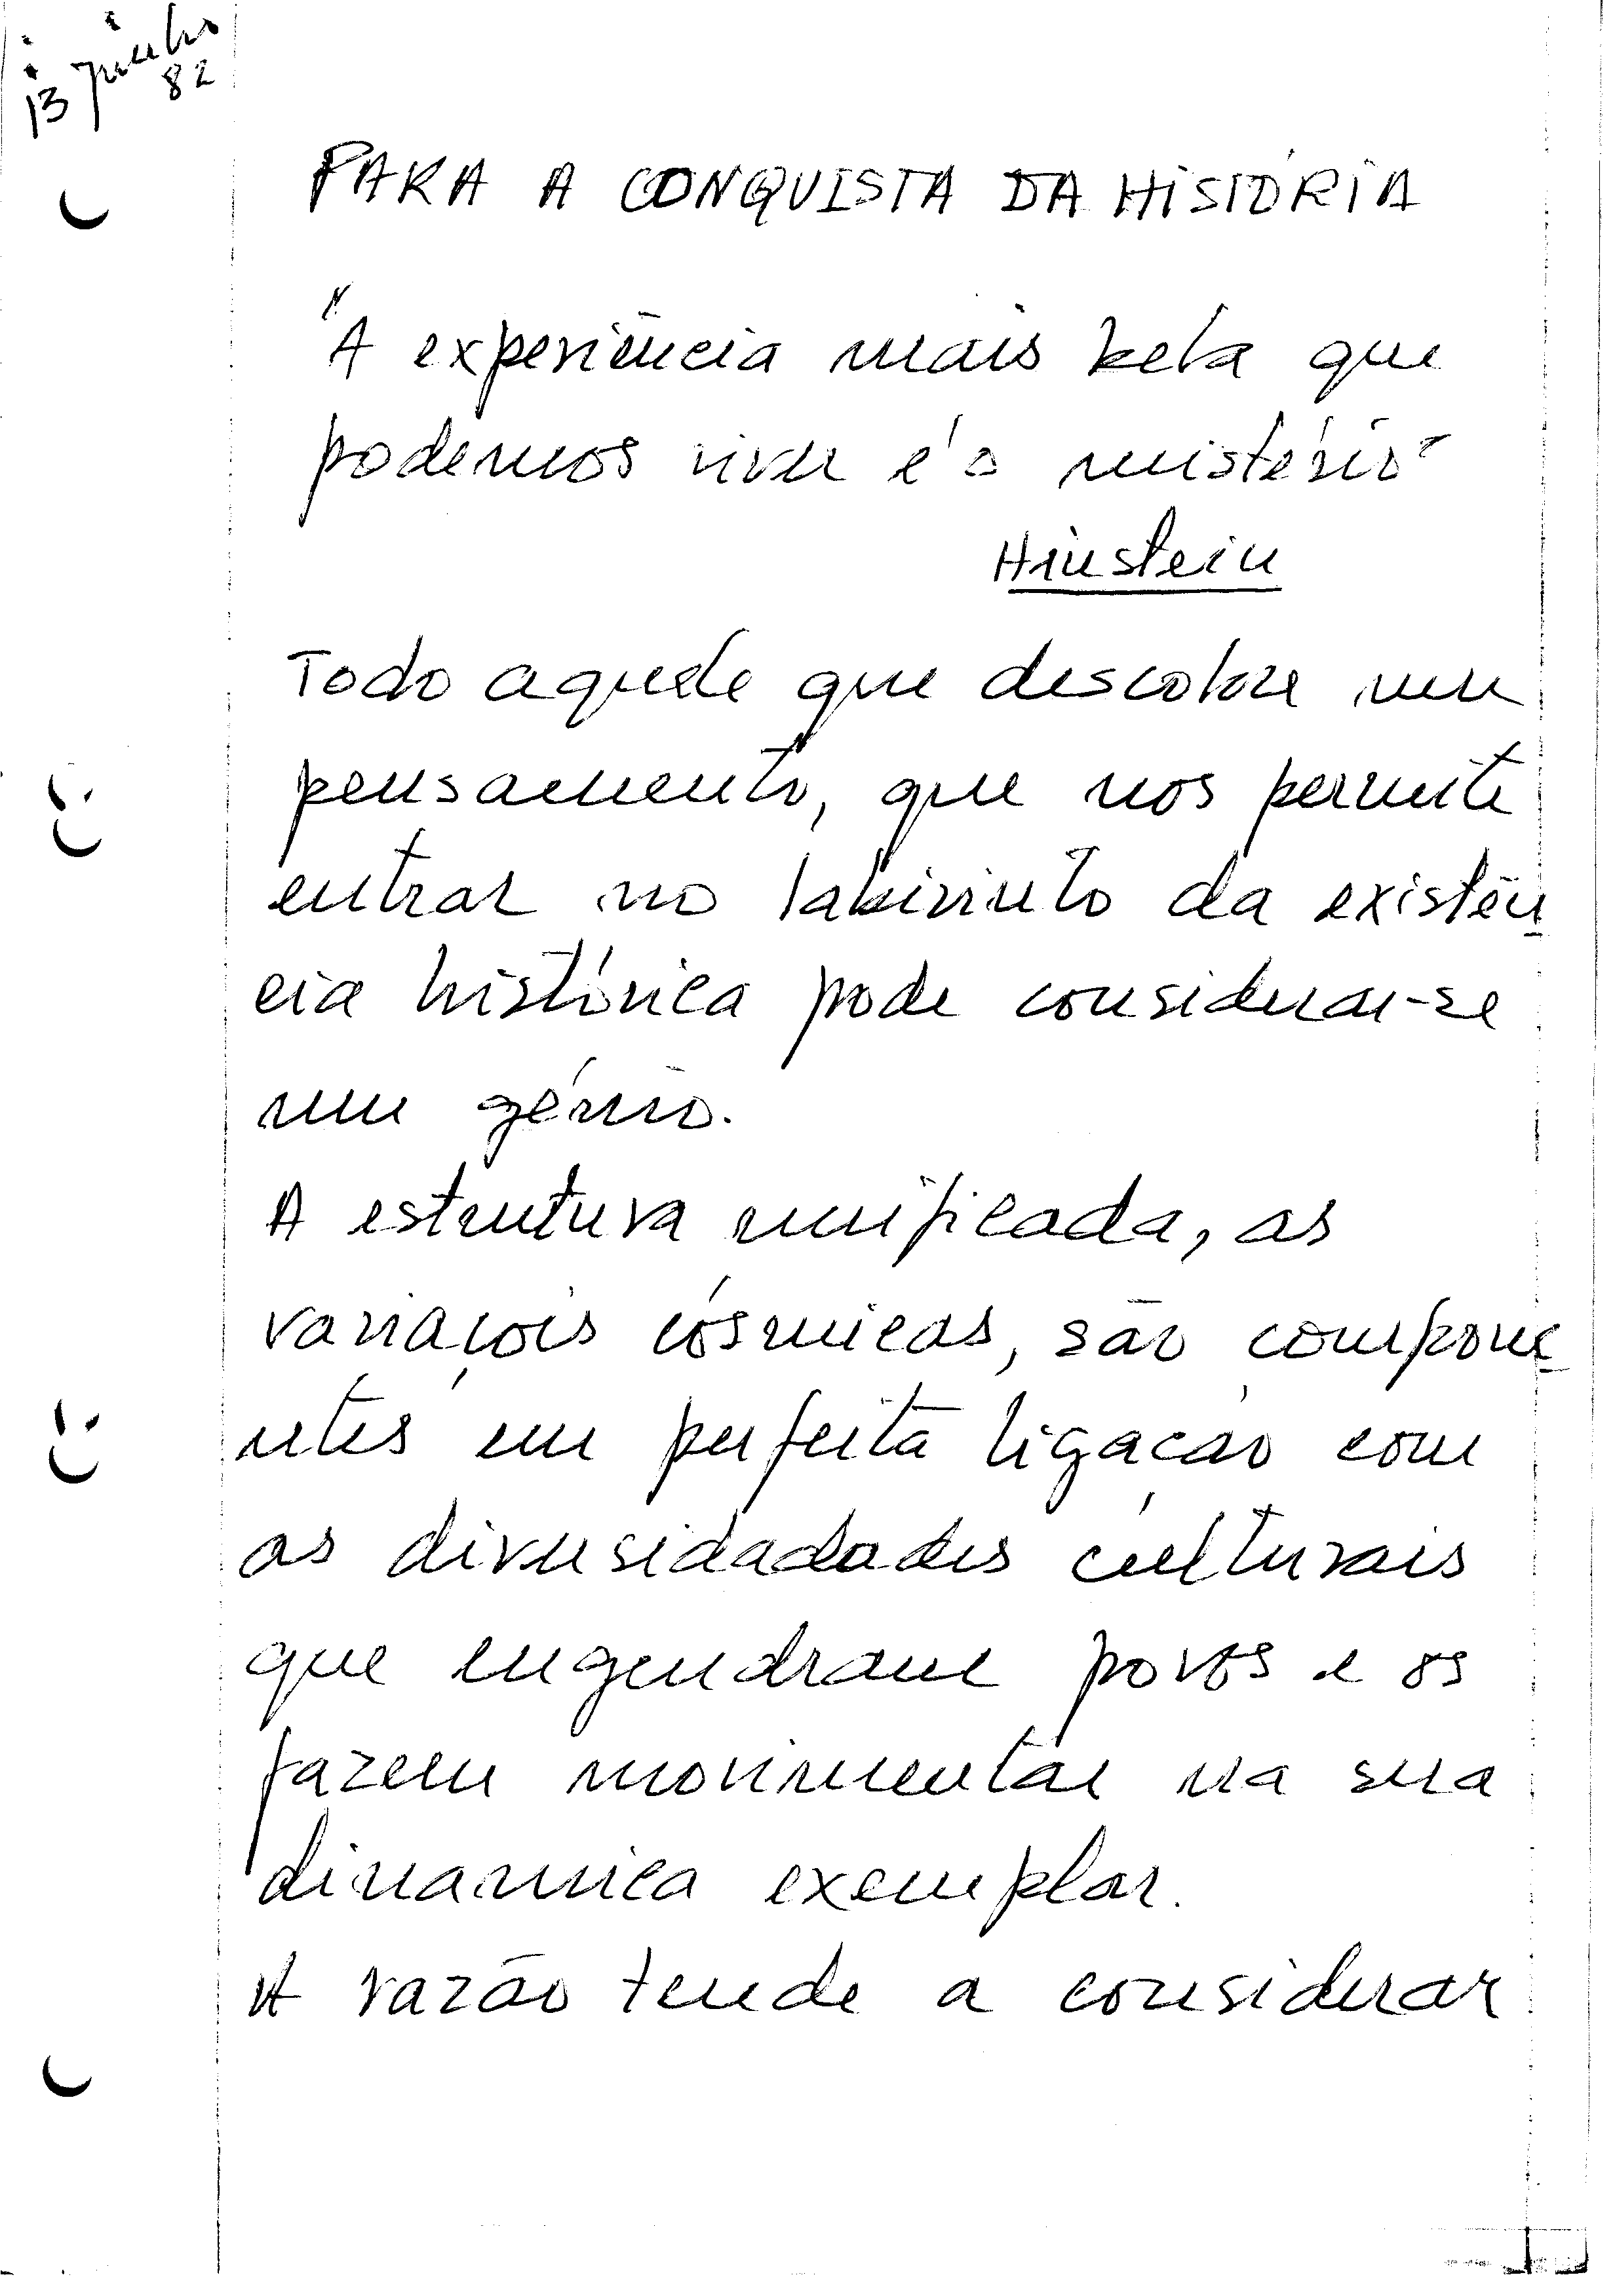 13 junho
82
PARA A CONQUISTA DA HISTÓRIA
"A experiência mais bela que
podemos viver é o mistério"
Hinstein
Todo aquele que descobre um
pensamento, que nos permite
entrar no labirinto da existên
cia histórica pode considerar-se
um génio.
A estrutura unificada, as
variaçois cósmicas, são compone
ntes em perfeita ligação com
as diversidadades culturais
que engendram povos e os
fazem movimentar na sua
dinamica exemplar.
A razão tende a considerar